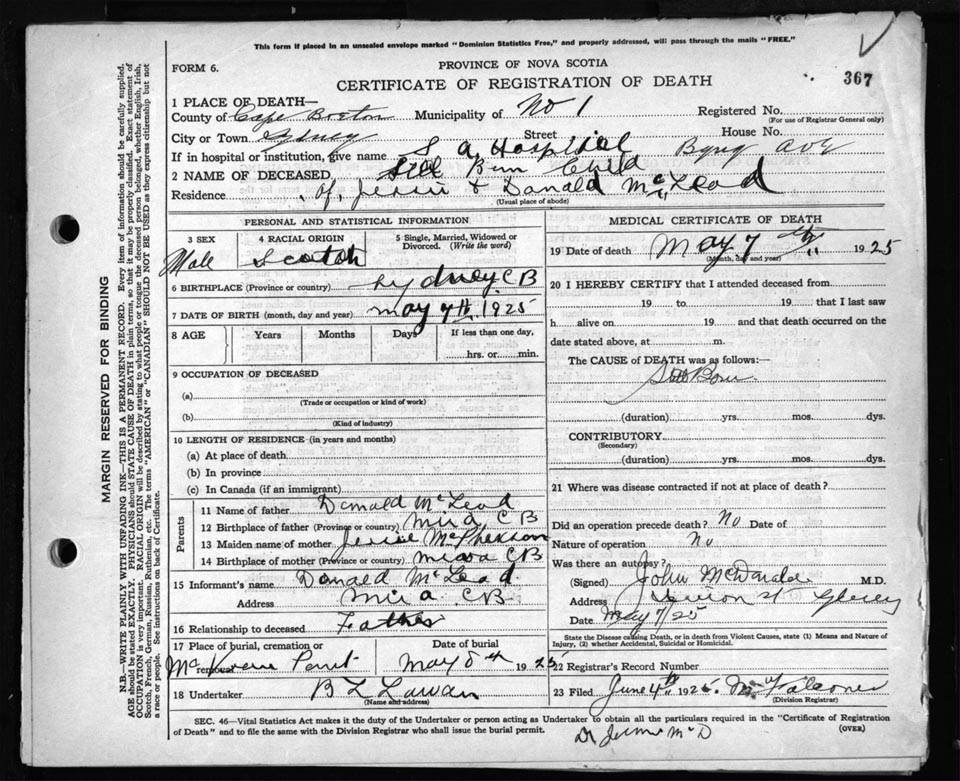 This form if placed in an unsealed envelope marked "Dominion Statistics Free," and properly addressed, will pass through the mails "FREE."
FORM 6.
PROVINCE OF NOVA SCOTIA
367
CERTIFICATE OF REGISTRATION OF DEATH
1 PLACE OF DEATH—
County of Cape Breton Municipality of No 1 Registered No.
(For use of Registrar General only)
City or Town Sydney Street House No.
If in hospital or institution, give name S A Hospital Byng Ave
2 NAME OF DECEASED Still Born Child
Residence of Jessie & Donald McLeod
(Usual place of abode)
PERSONAL AND STATISTICAL INFORMATION
3 SEX 4 RACIAL ORIGIN 5 Single, Married, Widowed or Divorced. (Write the word)
Male Scotch
6 BIRTHPLACE (Province or country) Sydney C B
7 DATE OF BIRTH (month, day and year) May 7th 1925
8 AGE Years Months Days If less than one day,
hrs. or min.
9 OCCUPATION OF DECEASED
(a)
(Trade or occupation or kind of work)
(b)
(Kind of industry)
10 LENGTH OF RESIDENCE (in years and months)
(a) At place of death
(b) In province
(c) In Canada (if an immigrant)
Parents
11 Name of father Donald McLeod
12 Birthplace of father (Province or country) Mira, C B
13 Maiden name of mother Jessie McPherson
14 Birthplace of mother (Province or country) Mira C B
15 Informant's name Donald McLeod
Address Mira CB
16 Relationship to deceased Father
17 Place of burial, cremation or removal Date of burial
May 8th 1925
18 Undertaker B L
(Name and address)
MEDICAL CERTIFICATE OF DEATH
19 Date of death May 7th 1925
(Month, day and year)
20 I HEREBY CERTIFY that I attended deceased from
19 to 19 that I last saw
h alive on 19 and that death occurred on the
date stated above, at m.
The CAUSE OF DEATH was as follows:
Still Born
(duration) yrs. mos. dys.
CONTRIBUTORY
(Secondary)
(duration) yrs. mos. dys.
21 Where was disease contracted if not at place of death?
Did an operation precede death? No Date of
Nature of operation No
Was there an autopsy?
(Signed) John M.D.
Address
Date May 7/25
State the Disease causing Death, or in death from Violent Causes, state (1) Means and Nature of Injury, (2) whether Accidental, Suicidal or Homicidal.
22 Registrar's Record Number
23 Filed June 4th 1925
(Division Registrar)
SEC. 46—Vital Statistics Act makes it the duty of the Undertaker or person acting as Undertaker to obtain all the particulars required in the "Certificate of Registration
of Death" and to file the same with the Division Registrar who shall issue the burial permit.
(OVER)
MARGIN RESERVED FOR BINDING
N.B.—WRITE PLAINLY WITH UNFADING INK—THIS IS A PERMANENT RECORD. Every item of information should be carefully supplied.
AGE should be stated EXACTLY. PHYSICIANS should STATE CAUSE OF DEATH in plain terms, so that it may be properly classified. Exact statement of
OCCUPATION is very important. RACIAL ORIGIN will be described by stating to what people or tongue the deceased person belonged, whether English, Irish,
Scotch, French, German, Russian, Ruthenian, etc. The terms "AMERICAN" or "CANADIAN" SHOULD NOT BE USED as they express citizenship but not
a race or people. See instructions on back of Certificate.